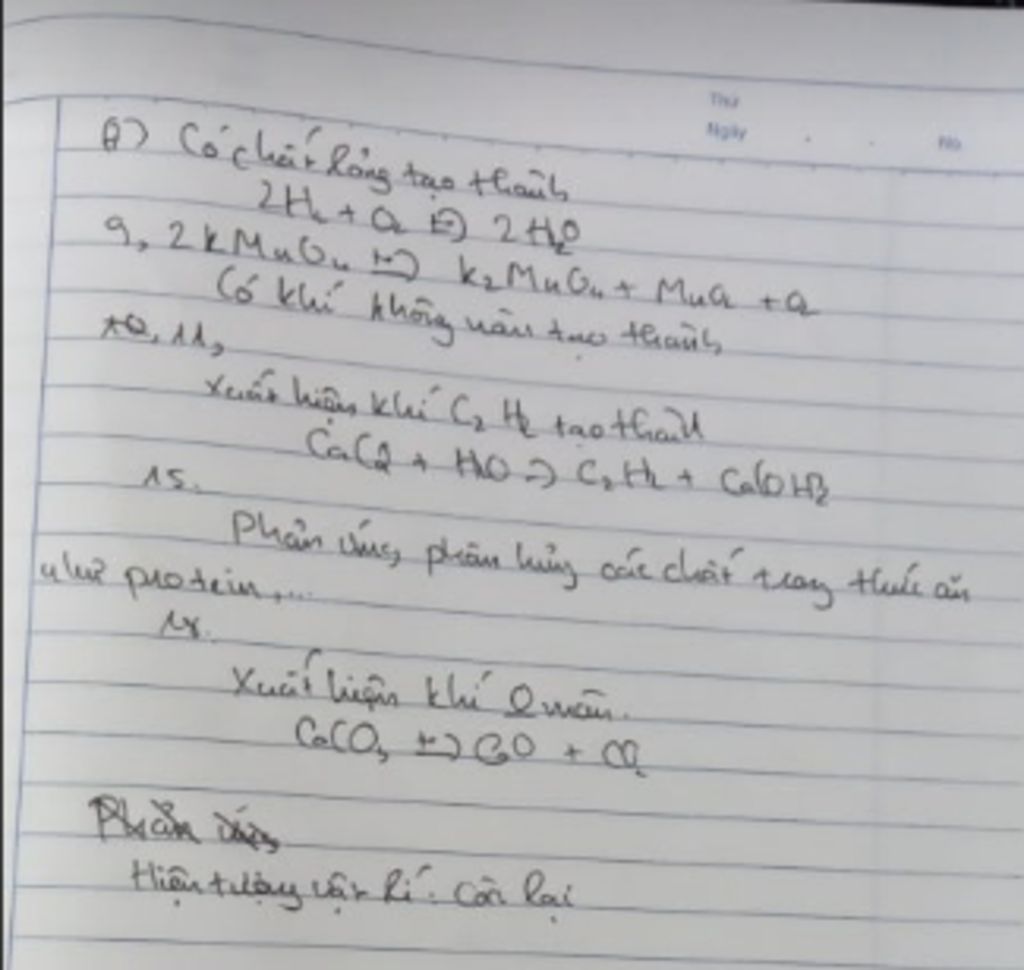 Thứ
Ngày . . No
8) Có chất lỏng tạo thành
2H₂ + O₂ → 2H₂O
9, 2KMnO₄ → K₂MnO₄ + MnO₂ + O₂
Có khí không màu tạo thành
10, 11,
Xuất hiện khí C₂H₂ tạo thành
CaC₂ + H₂O → C₂H₂ + Ca(OH)₂
15.
Phản ứng phân hủy các chất trong thức ăn
như protein,...
Xuất hiện khí màu.
CaCO₃ → CaO + CO₂
Phản ứng
Hiện tượng vật lí: còn lại